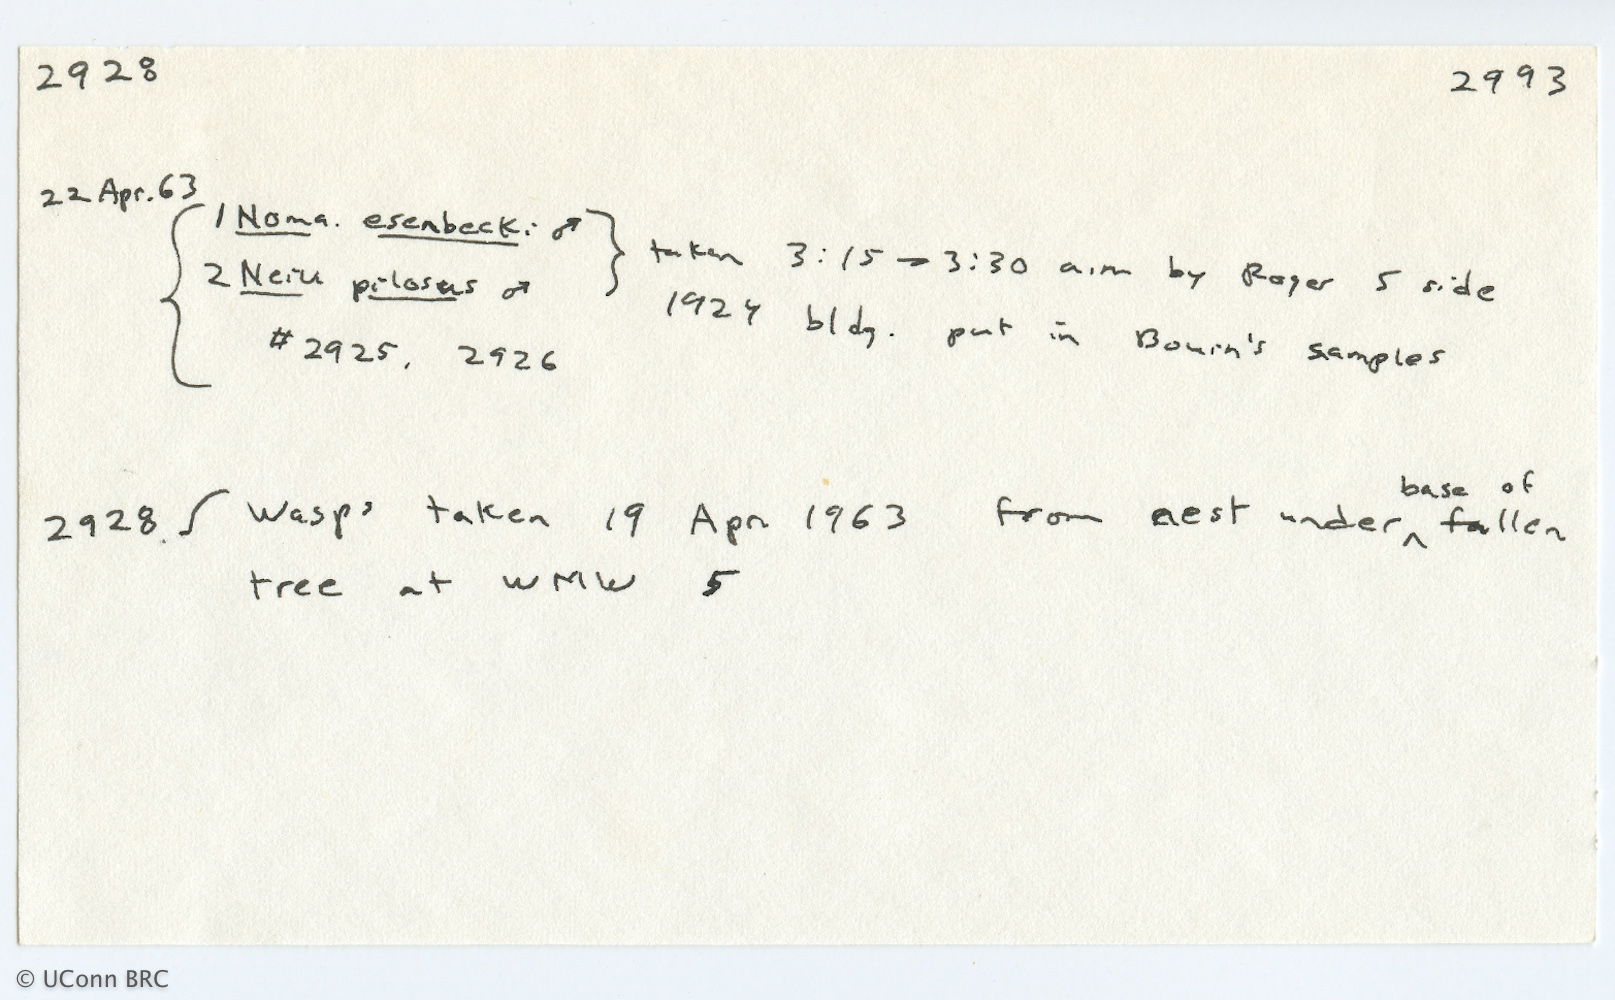 2928 2993
22 Apr. 63
1 Noma. esenbecki ♂ } taken 3:15 → 3:30 a.m by Roger S side
2 Neiu pilosus ♂ 1924 bldg. put in Bourn's samples
# 2925, 2926
2928 Wasps taken 19 Apr 1963 from nest under base of fallen
tree at WMW 5
© UConn BRC